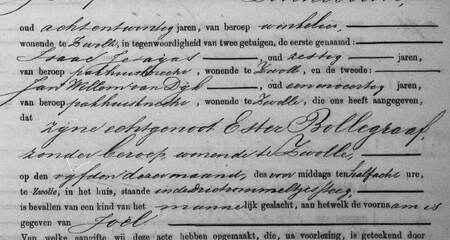 oud achtentwintig jaren, van beroep winkelier,
wonende te Zwolle, in tegenwoordigheid van twee getuigen, de eerste genaamd:
Isaac oud zestig jaren,
van beroep pakhuisknecht, wonende te Zwolle, en de tweede:
Jan Willem van Dijk oud eenenveertig jaren,
van beroep pakhuisknecht, wonende te Zwolle, die ons heeft aangegeven,
dat
zijne echtgenoot Ester Bollegraaf,
zonder beroep, wonende te Zwolle,
op den vijfden dezer maand, des middags ten half acht ure,
te Zwolle, in het huis, staande in de
is bevallen van een kind van het mannelijk geslacht, aan hetwelk de voornaam is
gegeven van Joël
Van welke aangifte wij deze acte hebben opgemaakt, die, na voorlezing, is geteekend door